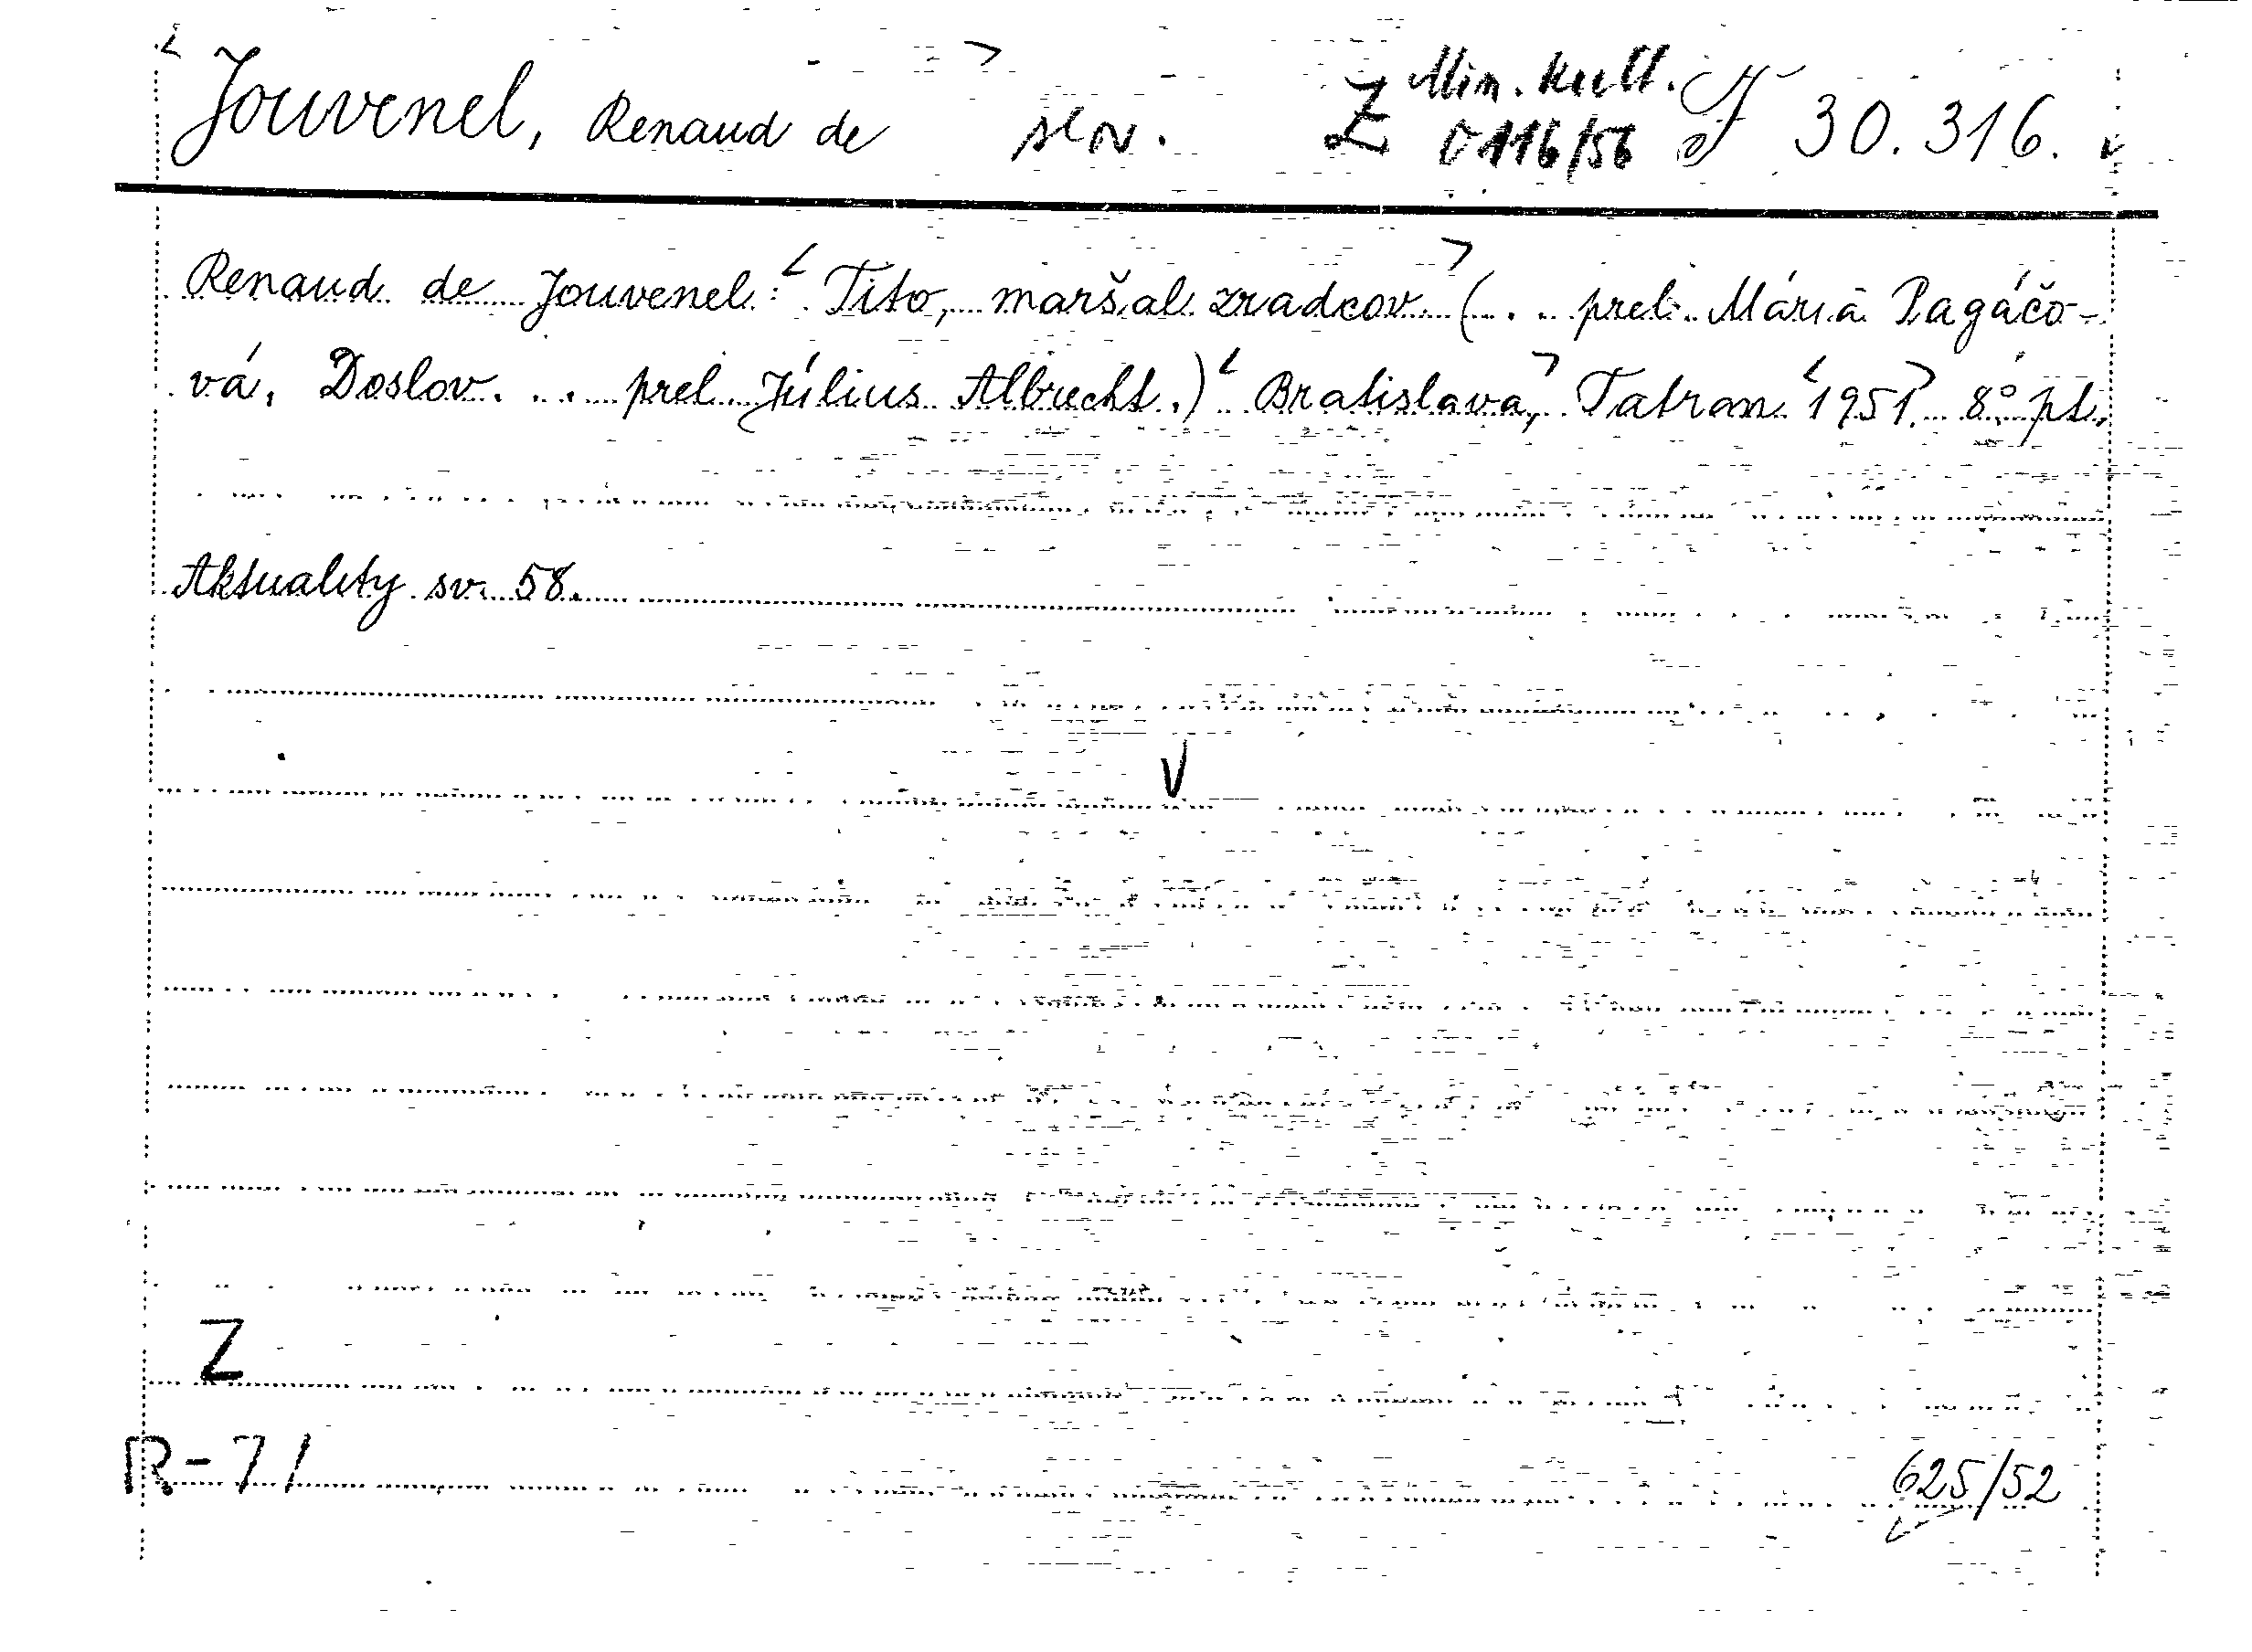 Jouvenel, Renaud de slov. Z Min. kult. 0116/56 J 30.316.
Renaud de Jouvenel: Tito, maršal zradcov (.. prel. Mária Pagáčo-
vá. Doslov... prel. Július Albrecht.) Bratislava, Tatran 1951. 8° pt.
Aktuality sv. 58.
V
Z
R-71
625/52